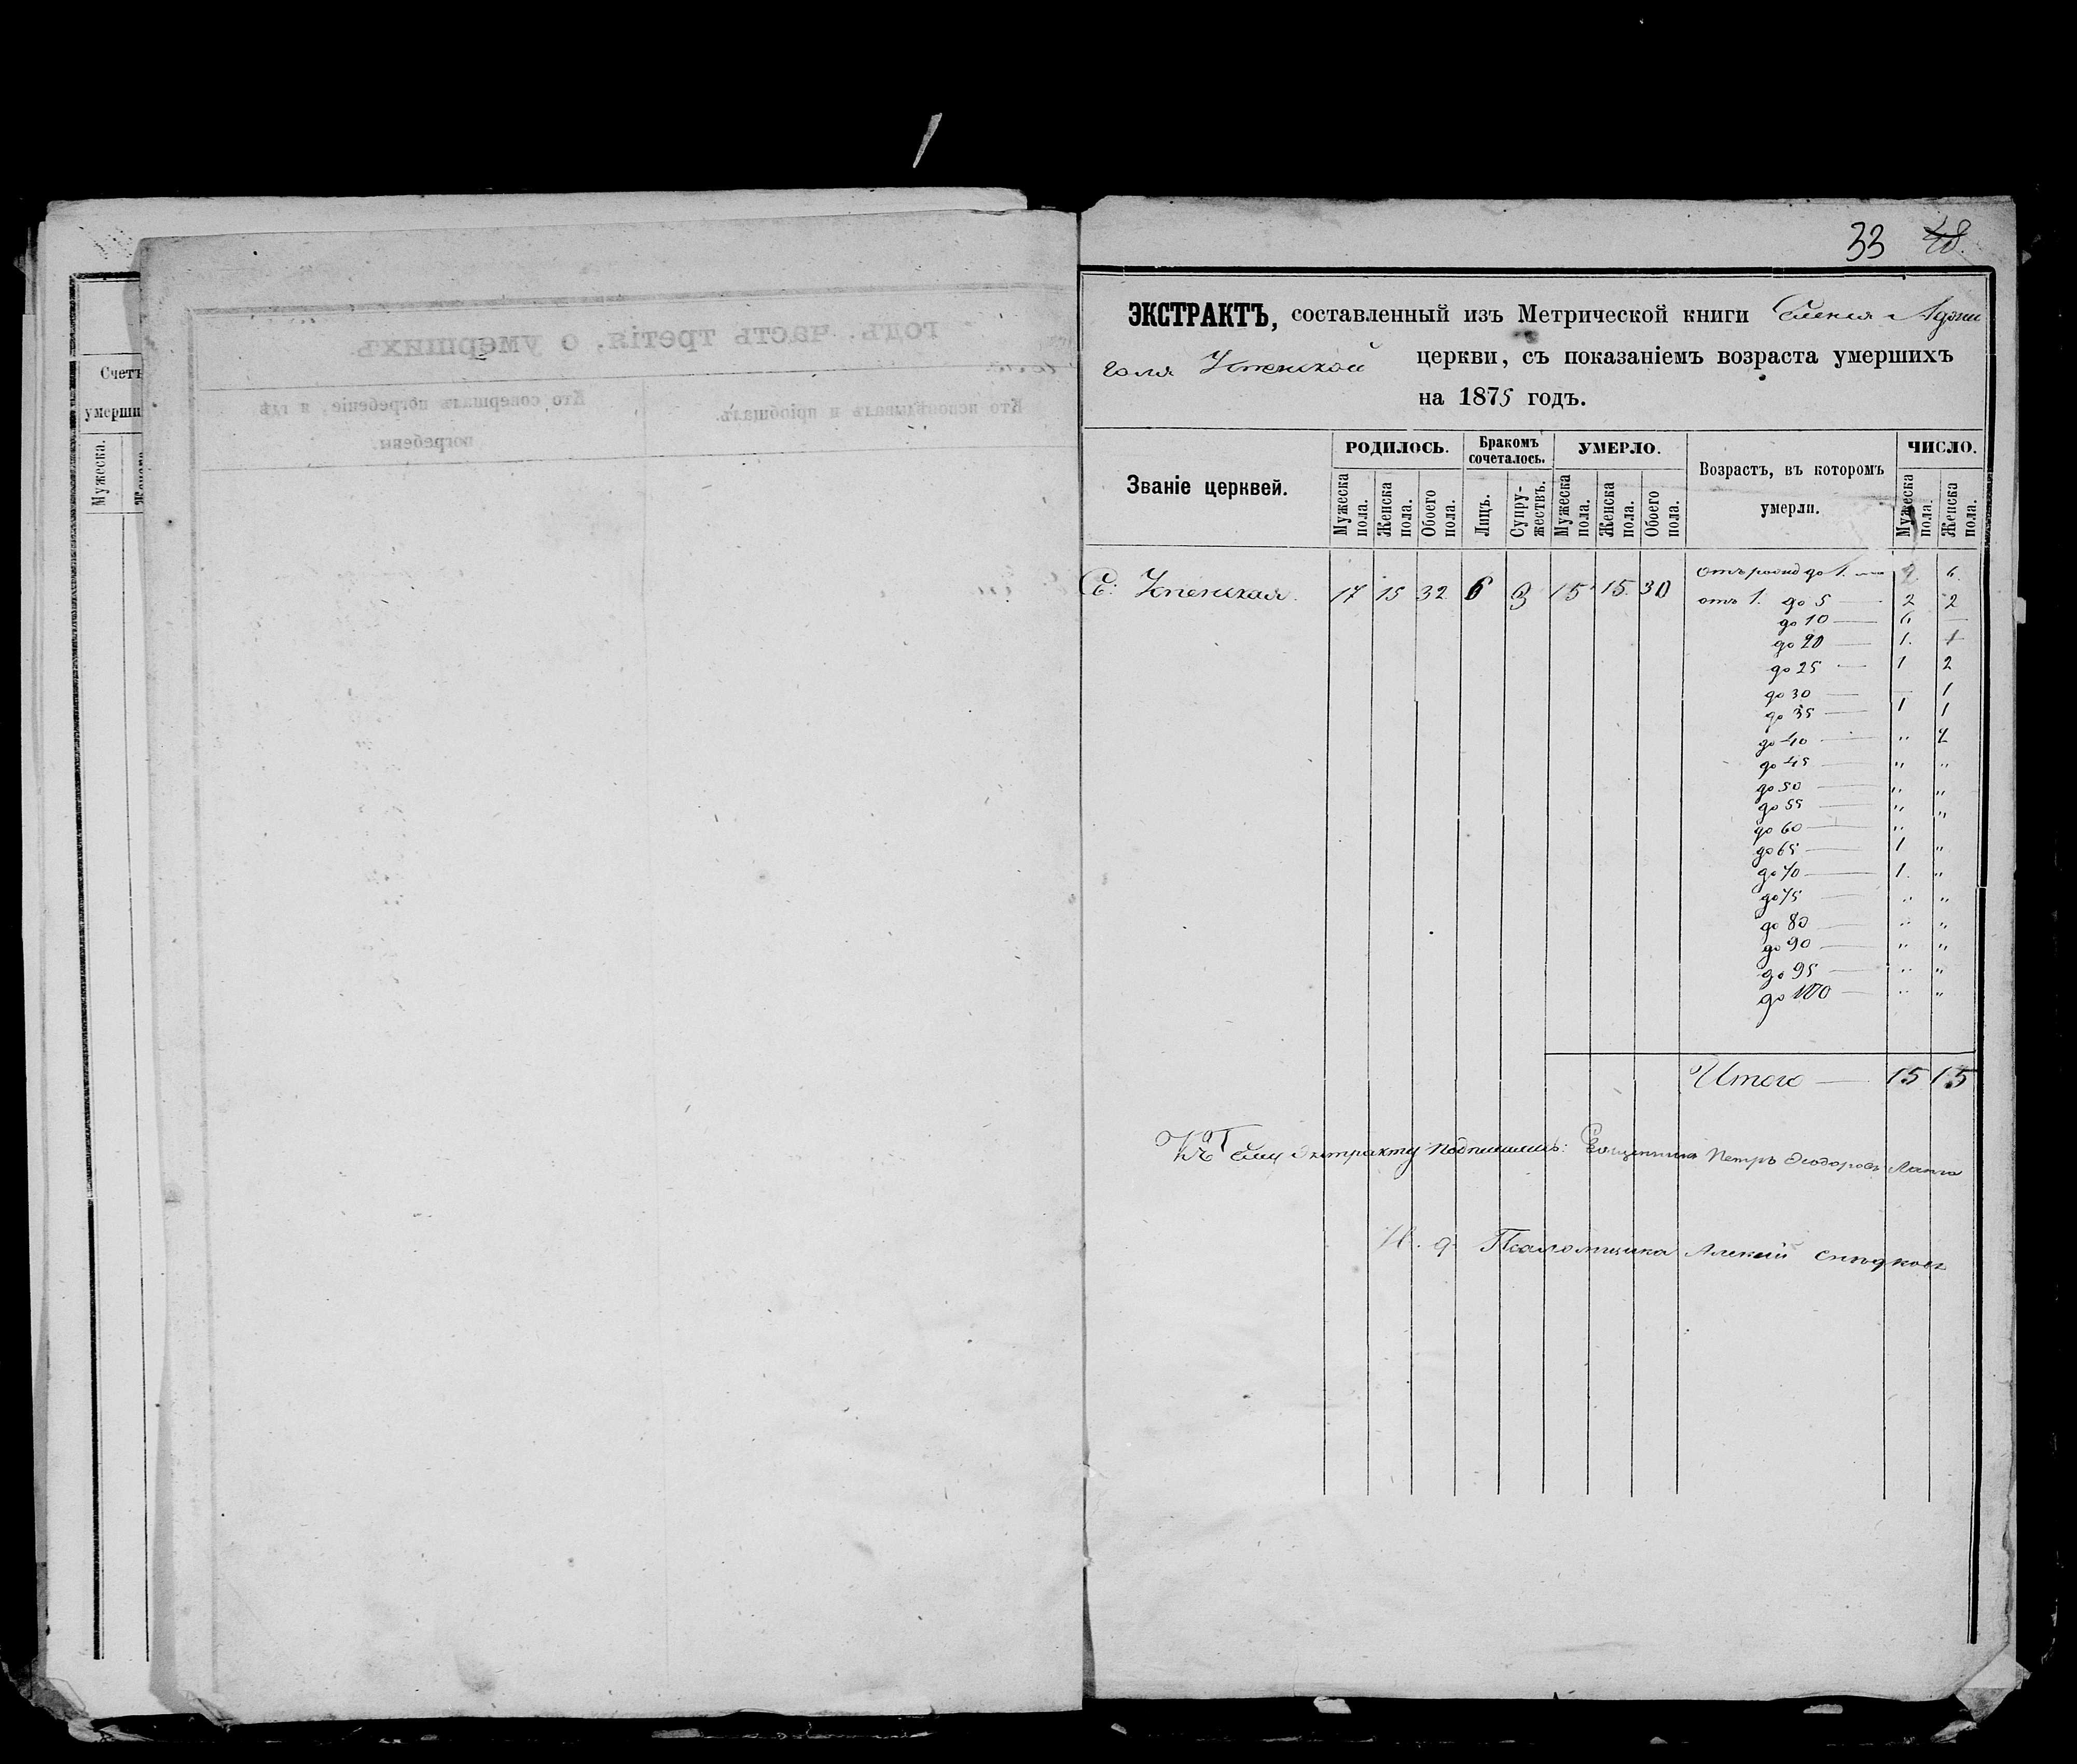 33 48.
ЭКСТРАКТЪ, составленный изъ Метрической книги Селенія Аджи
голя Успенской церкви, съ показаніемъ возраста умершихъ
на 1875 годъ.
Званіе церквей.
РОДИЛОСЬ.
Мужеска пола.
Женска пола.
Обоего пола.
Бракомъ сочеталось.
Лицъ.
Супружествъ.
УМЕРЛО.
Мужеска пола.
Женска пола.
Обоего пола.
Возрастъ, въ которомъ
умерли.
ЧИСЛО.
Мужеска пола.
Женска пола.
С: Успенская. 17 15 32 6 3 15 15. 30
до 1. — 2. 6.
отъ 1. до 5 — 2 2
до 10 — 6 —
до 20 — 1. 1
до 25 — 1 2
до 30 — — 1
до 35 — 1 1
до 40 — „ 2
до 45 — „ „
до 50 — „ „
до 55 — „ „
до 60 — „
до 65 — 1 „
до 70 — 1. „
до 75 — „ „
до 80 — „ „
до 90 — „ „
до 95 — „ „
до 100 — „ „
Итого — 15 15
Къ сему Экстракту подписались: Священникъ Петръ Ѳеодоровъ
И. д. Псаломщика Алексій
годъ. часть третія, о умершихъ.
Кто исповѣдывалъ и пріобщалъ.
Кто совершалъ погребеніе, и гдѣ
погребены.
Счетъ
умерши
Мужеска.